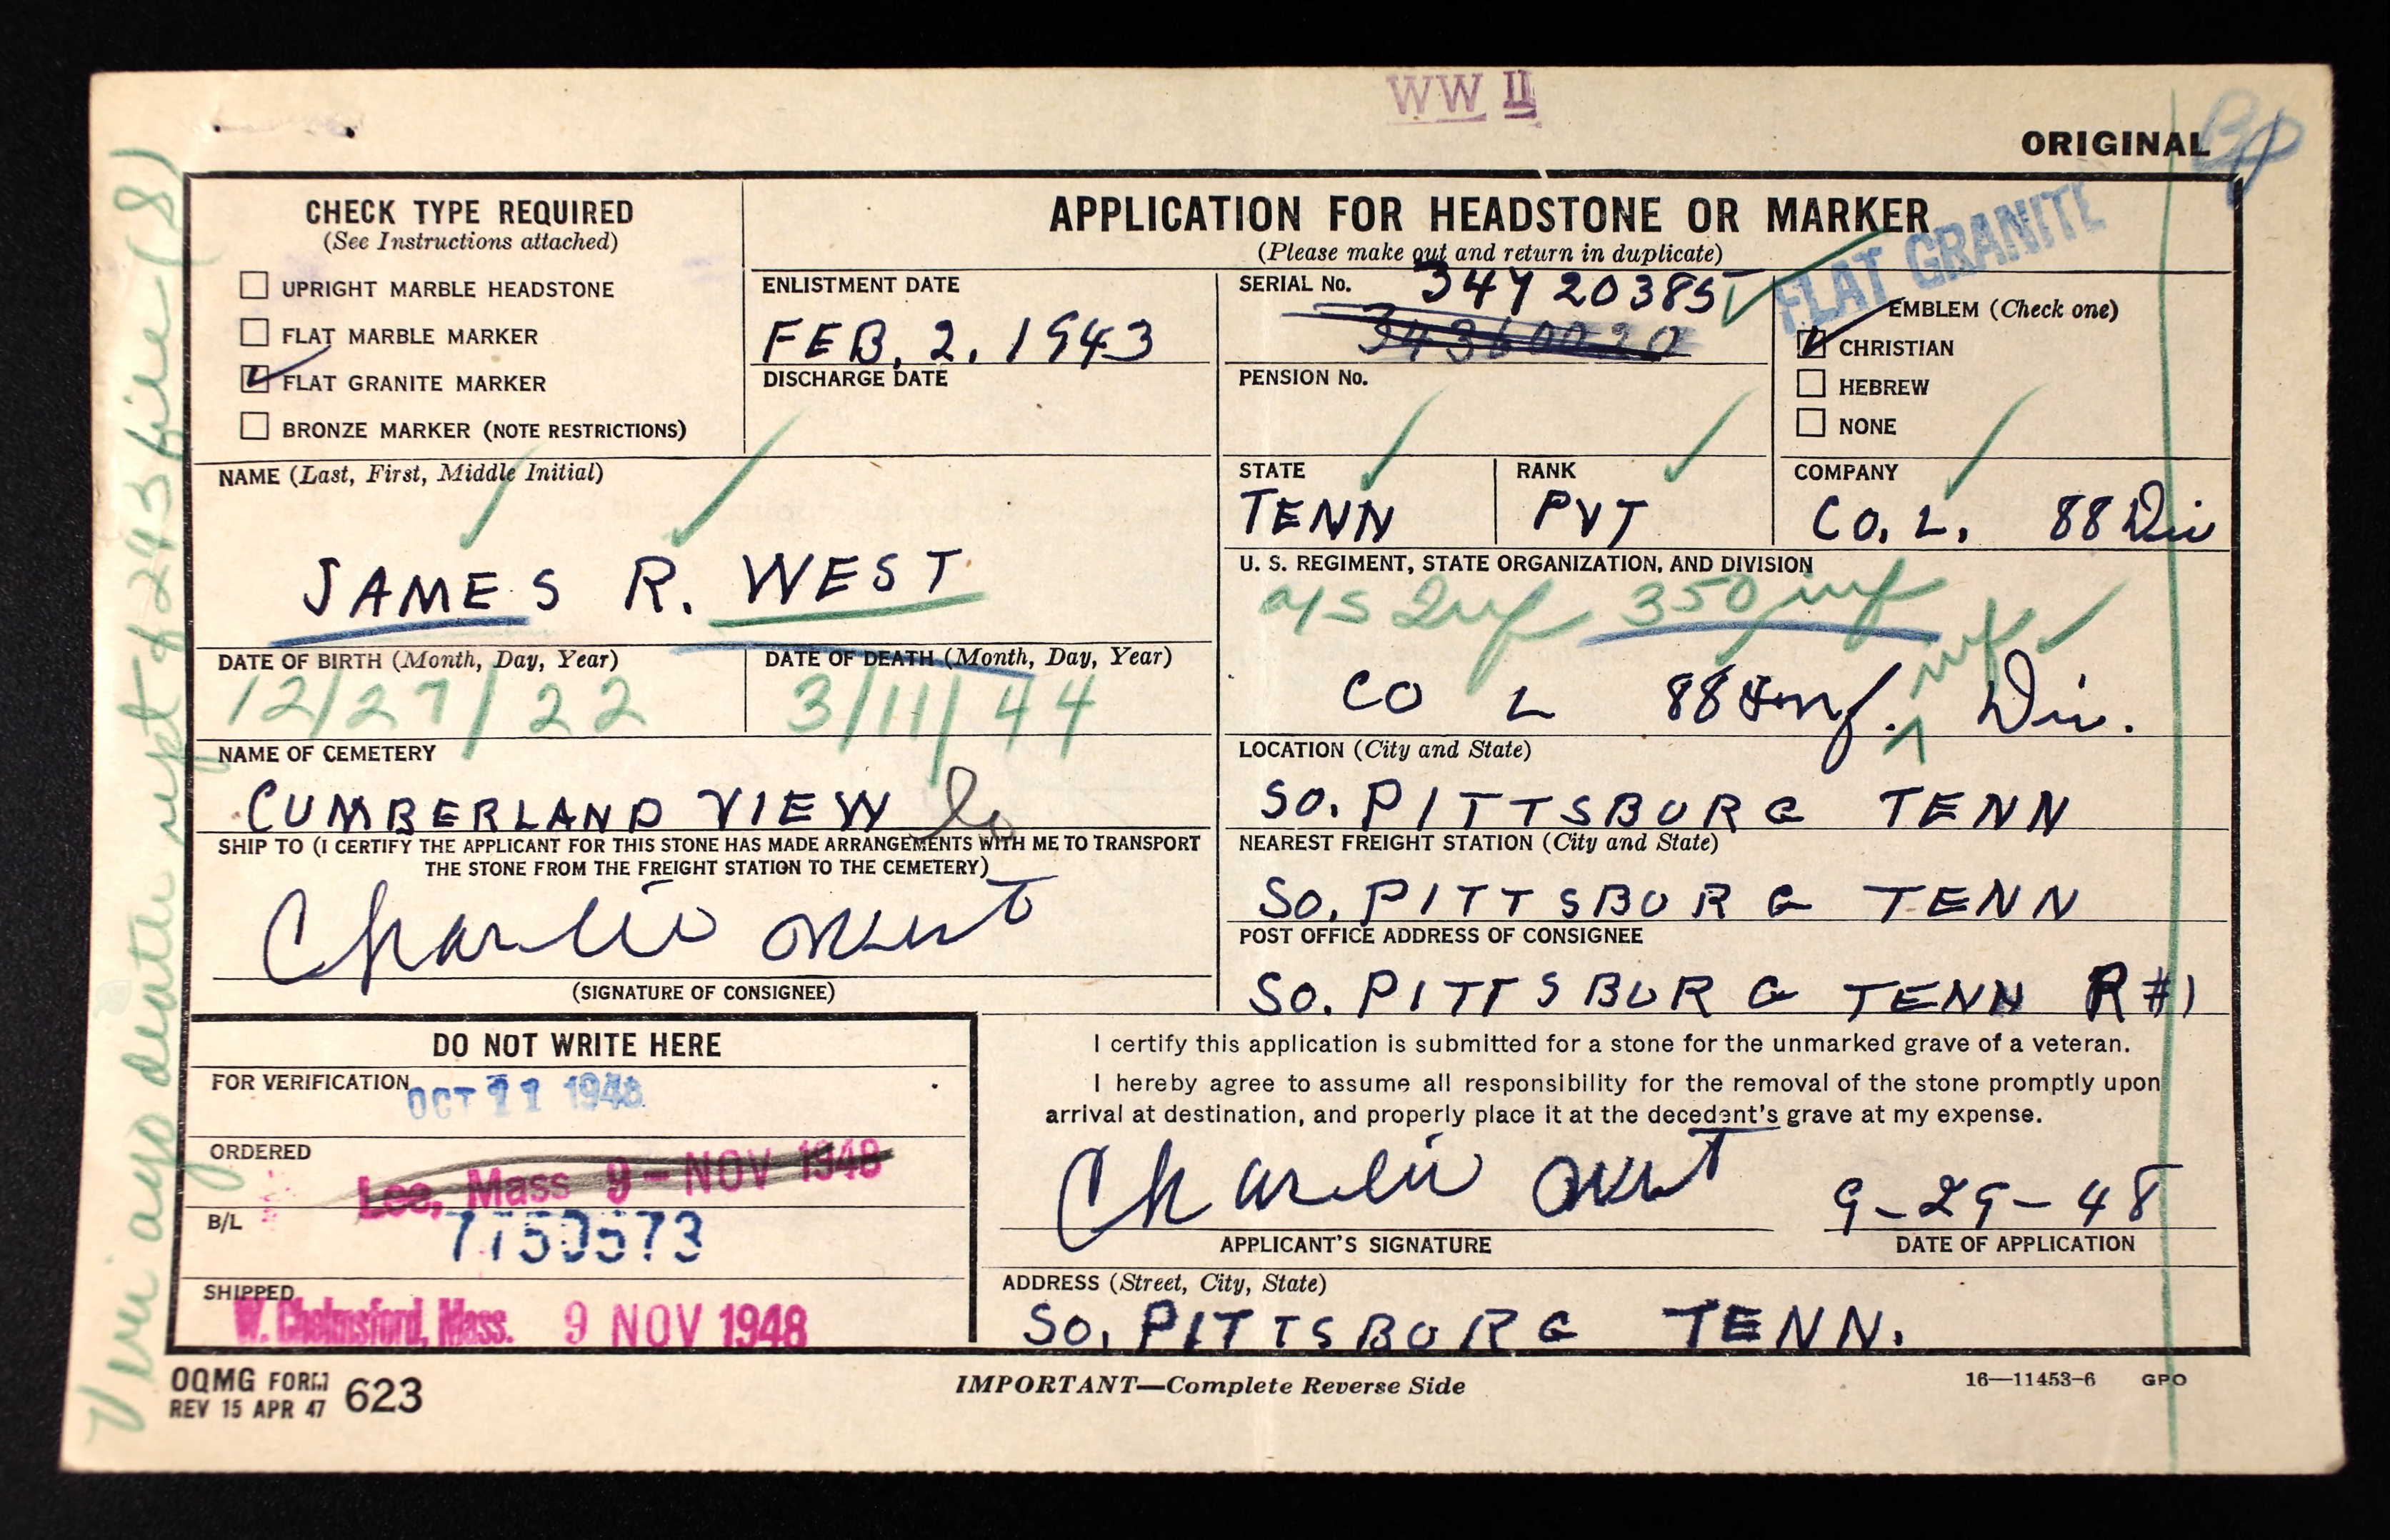 WW II
ORIGINAL
CHECK TYPE REQUIRED
(See Instructions attached)
UPRIGHT MARBLE HEADSTONE
FLAT MARBLE MARKER
FLAT GRANITE MARKER
BRONZE MARKER (NOTE RESTRICTIONS)
APPLICATION FOR HEADSTONE OR MARKER
(Please make out and return in duplicate)
FLAT GRANITE
ENLISTMENT DATE
FEB. 2. 1943
DISCHARGE DATE
SERIAL No. 34720385
34360020
PENSION No.
EMBLEM (Check one)
CHRISTIAN
HEBREW
NONE
NAME (Last, First, Middle Initial)
JAMES R. WEST
STATE
TENN
RANK
PVT
COMPANY
CO. L. 88 Div
U. S. REGIMENT, STATE ORGANIZATION, AND DIVISION
350 inf
CO L 88 Inf. inf Div.
DATE OF BIRTH (Month, Day, Year)
12/27/22
DATE OF DEATH (Month, Day, Year)
3/11/44
NAME OF CEMETERY
CUMBERLAND VIEW
LOCATION (City and State)
SO. PITTSBURG TENN
SHIP TO (I CERTIFY THE APPLICANT FOR THIS STONE HAS MADE ARRANGEMENTS WITH ME TO TRANSPORT
THE STONE FROM THE FREIGHT STATION TO THE CEMETERY)
Charlie
(SIGNATURE OF CONSIGNEE)
NEAREST FREIGHT STATION (City and State)
SO. PITTSBURG TENN
POST OFFICE ADDRESS OF CONSIGNEE
SO. PITTSBURG TENN R#1
DO NOT WRITE HERE
FOR VERIFICATION
OCT 1948
ORDERED
Lee, Mass 9 - NOV 1948
B/L
7750573
SHIPPED
W. Chelmsford, Mass. 9 NOV 1948
I certify this application is submitted for a stone for the unmarked grave of a veteran.
I hereby agree to assume all responsibility for the removal of the stone promptly upon
arrival at destination, and properly place it at the decedent's grave at my expense.
Charlie
9-29-48
APPLICANT'S SIGNATURE
DATE OF APPLICATION
ADDRESS (Street, City, State)
SO. PITTSBURG TENN.
OQMG FORM 623
REV 15 APR 47
IMPORTANT—Complete Reverse Side
16—11453-6 GPO
Veri ago death rept & 293 file (8)